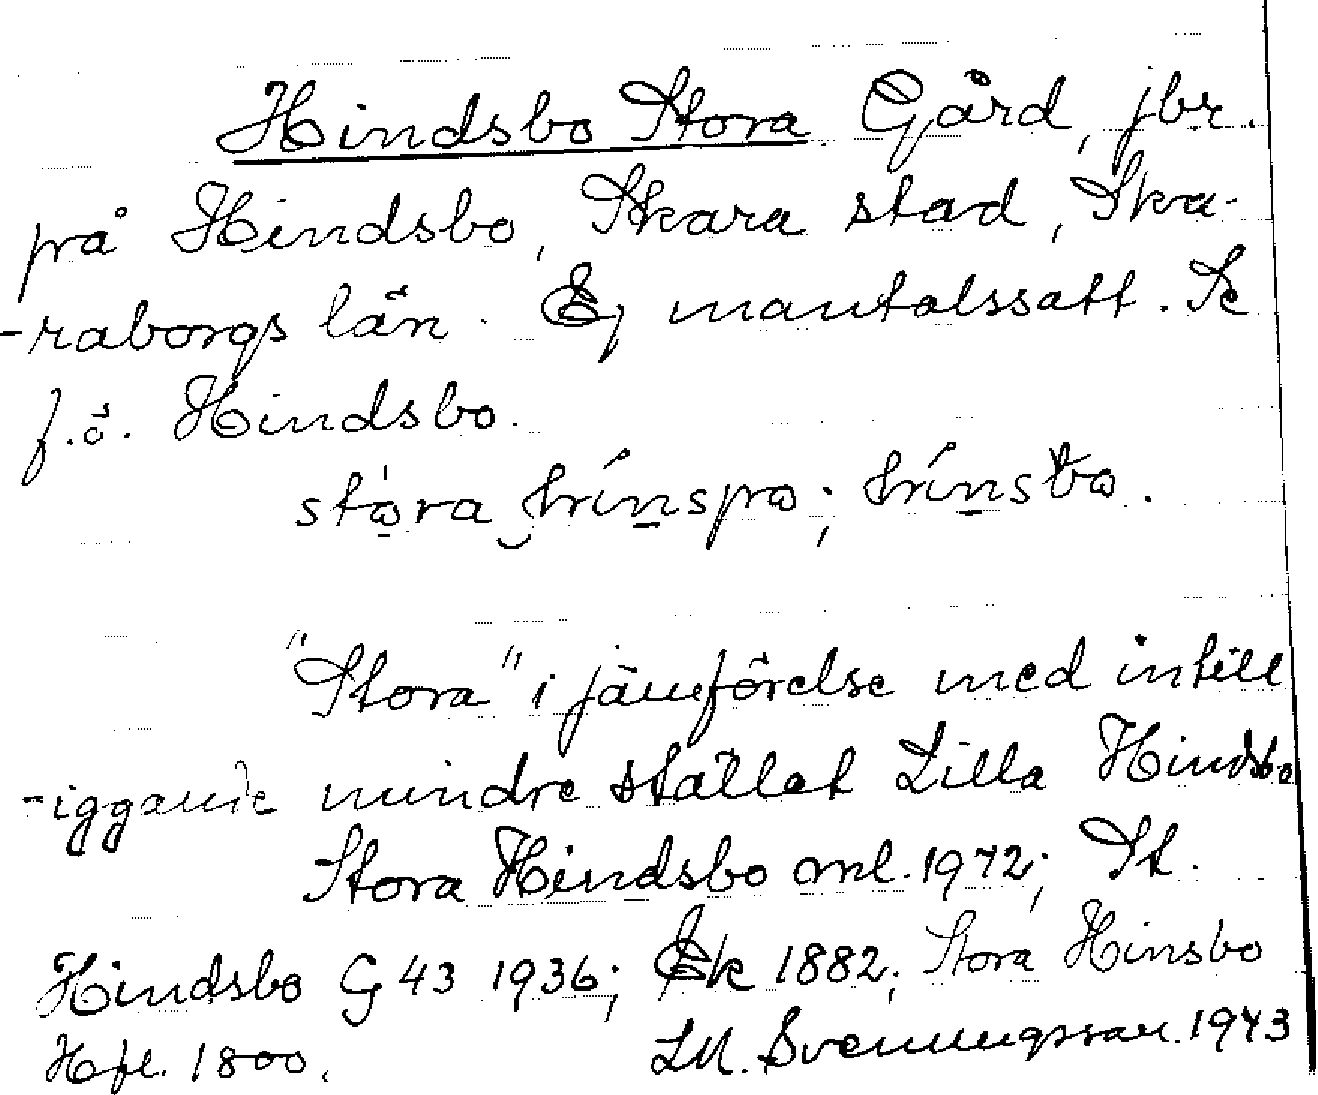 Hindsbo Stora Gård, jbr.
på Hindsbo, Skara stad, Ska-
-raborgs län. Ej mantalssatt. Se
f.ö. Hindsbo.
stora hinspo; hinsbo.
"Stora" i jämförelse med intill
-iggande mindre stället Lilla Hindsbo
Stora Hindsbo oml. 1972; St.
Hindsbo G 43 1936; Ek 1882; Stora Hinsbo
Hfl. 1800. LM. Svenungssan. 1943